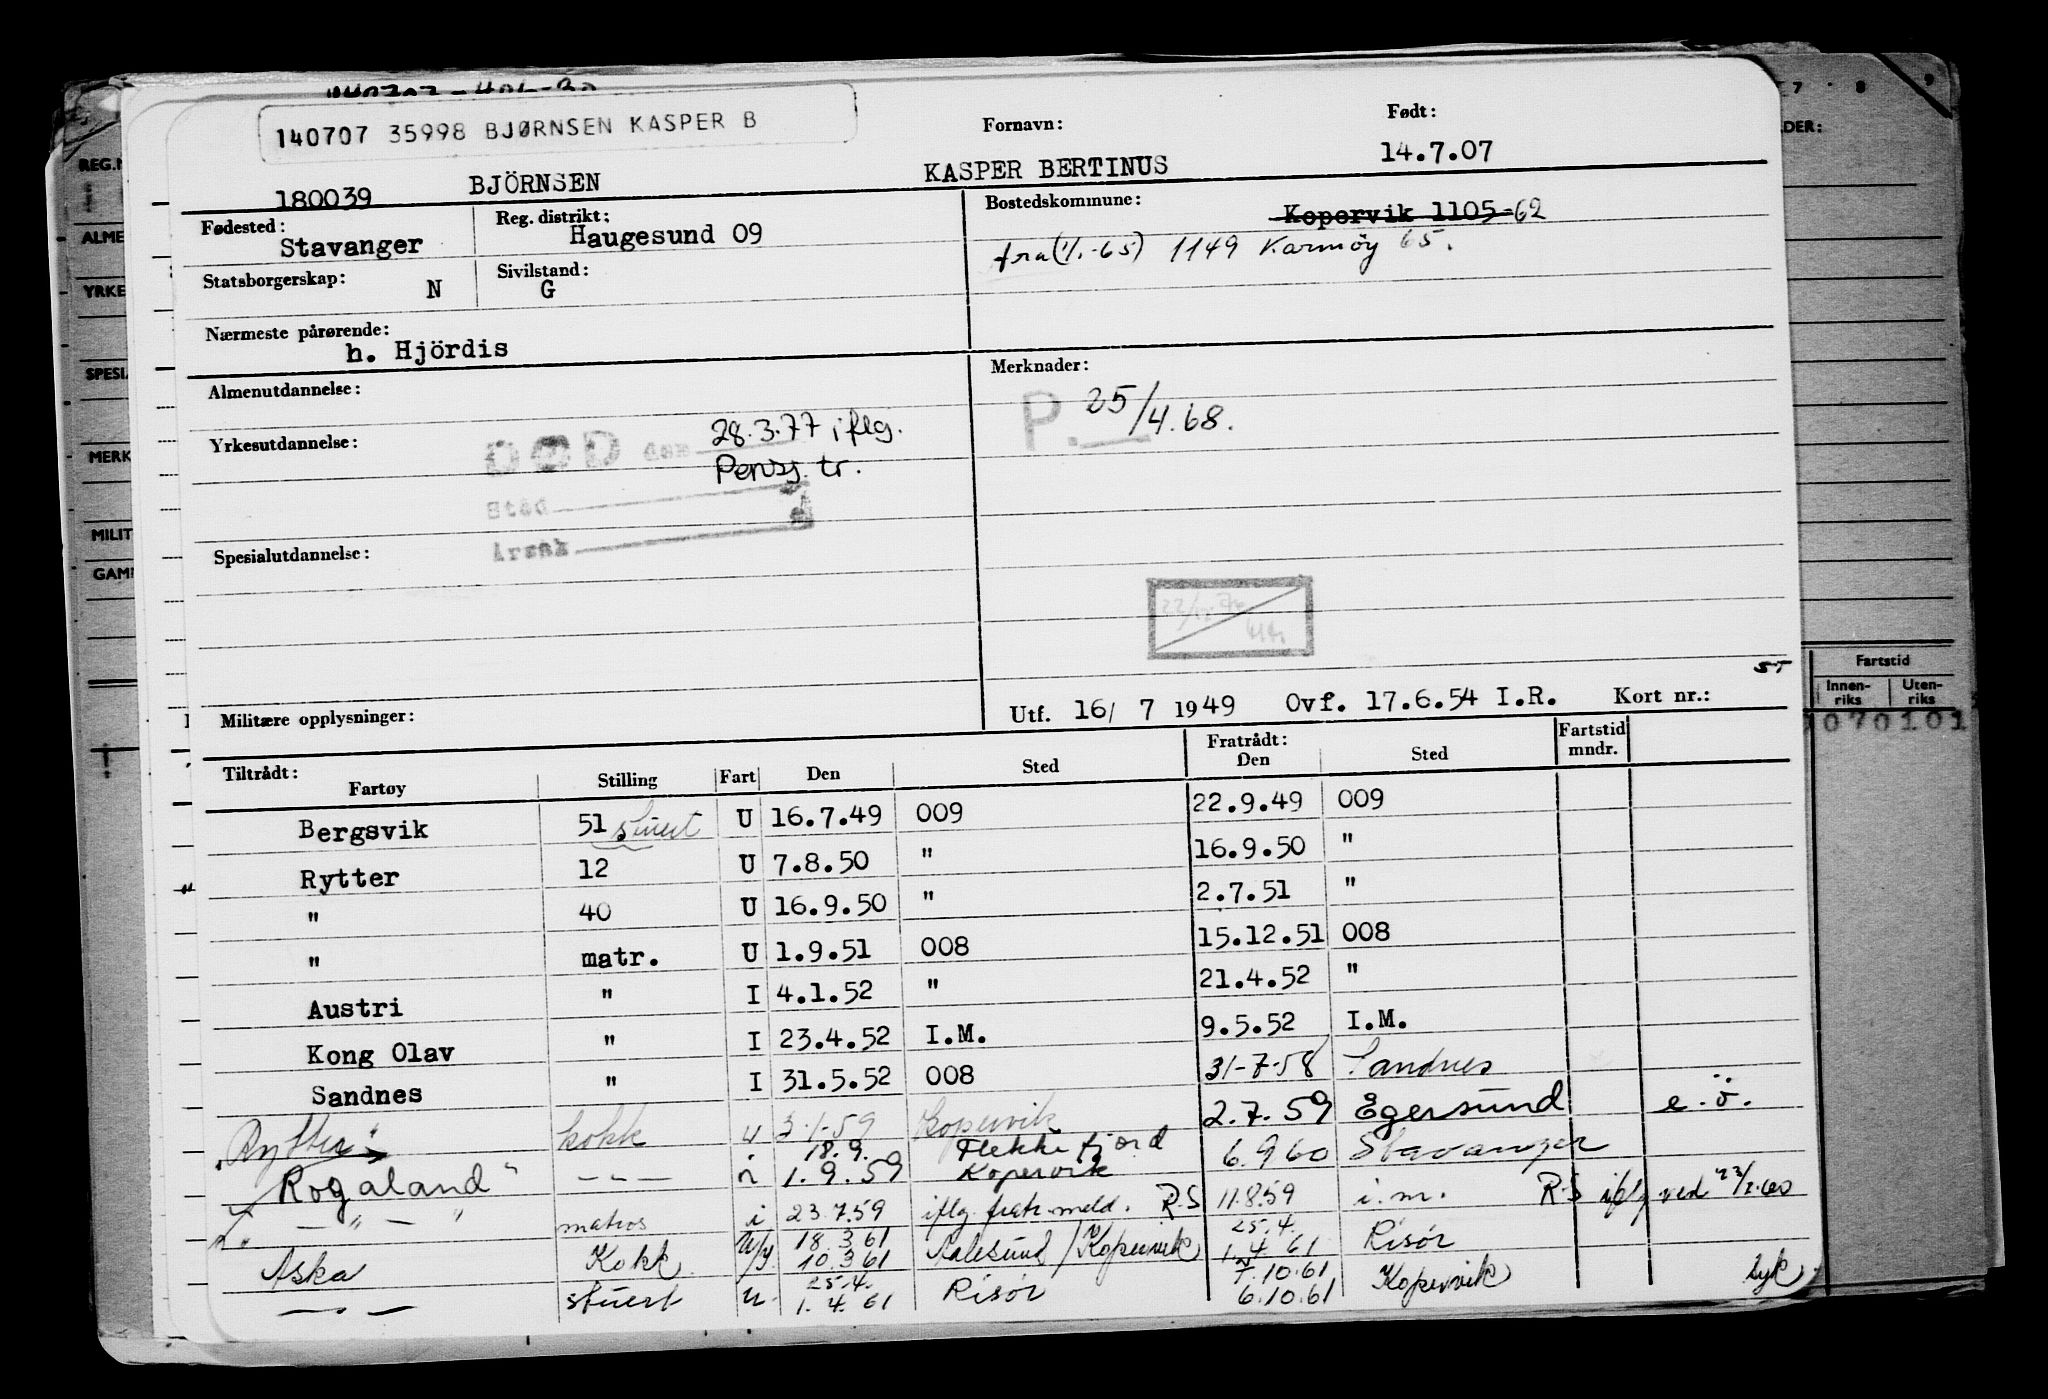 140707 35998 BJØRNSEN KASPER B
Fornavn: Født:
180039 BJÖRNSEN KASPER BERTINUS 14.7.07
Fødested: Stavanger Reg. distrikt: Haugesund 09 Bostedskommune: Kopervik 1105-62
fra (1/1-65) 1149 Karmöy 65.
Statsborgerskap: N Sivilstand: G
Nærmeste pårørende: h. Hjördis
Almenutdannelse: Merknader:
P. 25/4.68.
Yrkesutdannelse: DØD den 28.3.77 iflg.
Pensj. tr.
Sted
Årsak
Spesialutdannelse:
ST
Militære opplysninger: Utf. 16/ 7 1949 Ovf. 17.6.54 I.R. Kort nr.:
Tiltrådt: Fratrådt: Fartstid mndr.
Fartøy Stilling Fart Den Sted Den Sted
Bergsvik 51 stuert U 16.7.49 009 22.9.49 009
Rytter 12 U 7.8.50 " 16.9.50 "
" 40 U 16.9.50 " 2.7.51 "
" matr. U 1.9.51 008 15.12.51 008
Austri " I 4.1.52 " 21.4.52 "
Kong Olav " I 23.4.52 I.M. 9.5.52 I.M.
Sandnes " I 31.5.52 008 31-7-58 Sandnes
"Rytter" kokk u 3-1-59 Kopervik 2.7.59 Egersund e.ö.
18.9. Flekkefjord
"Rogaland" - " - i 1.9.59 Kopervik 6.9.60 Stavanger
- " - matros i 23.7.59 iflg. fratr. meld. R-S 11.8.59 i.m. R-S iflg ved
18.3.61 25.4.
Aska Kokk 10.3.61 Aalesund/Kopervik 1.4.61 Risør
25.4. 7.10.61
- " - stuert u. 1.4.61 Risør 6.10.61 Kopervik syk
REG.N
ALME
YRKE
SPESIA
MERK
MILIT
GAM
7 8 9
DER:
Fartstid
Innen-
riks
Uten-
riks
070101